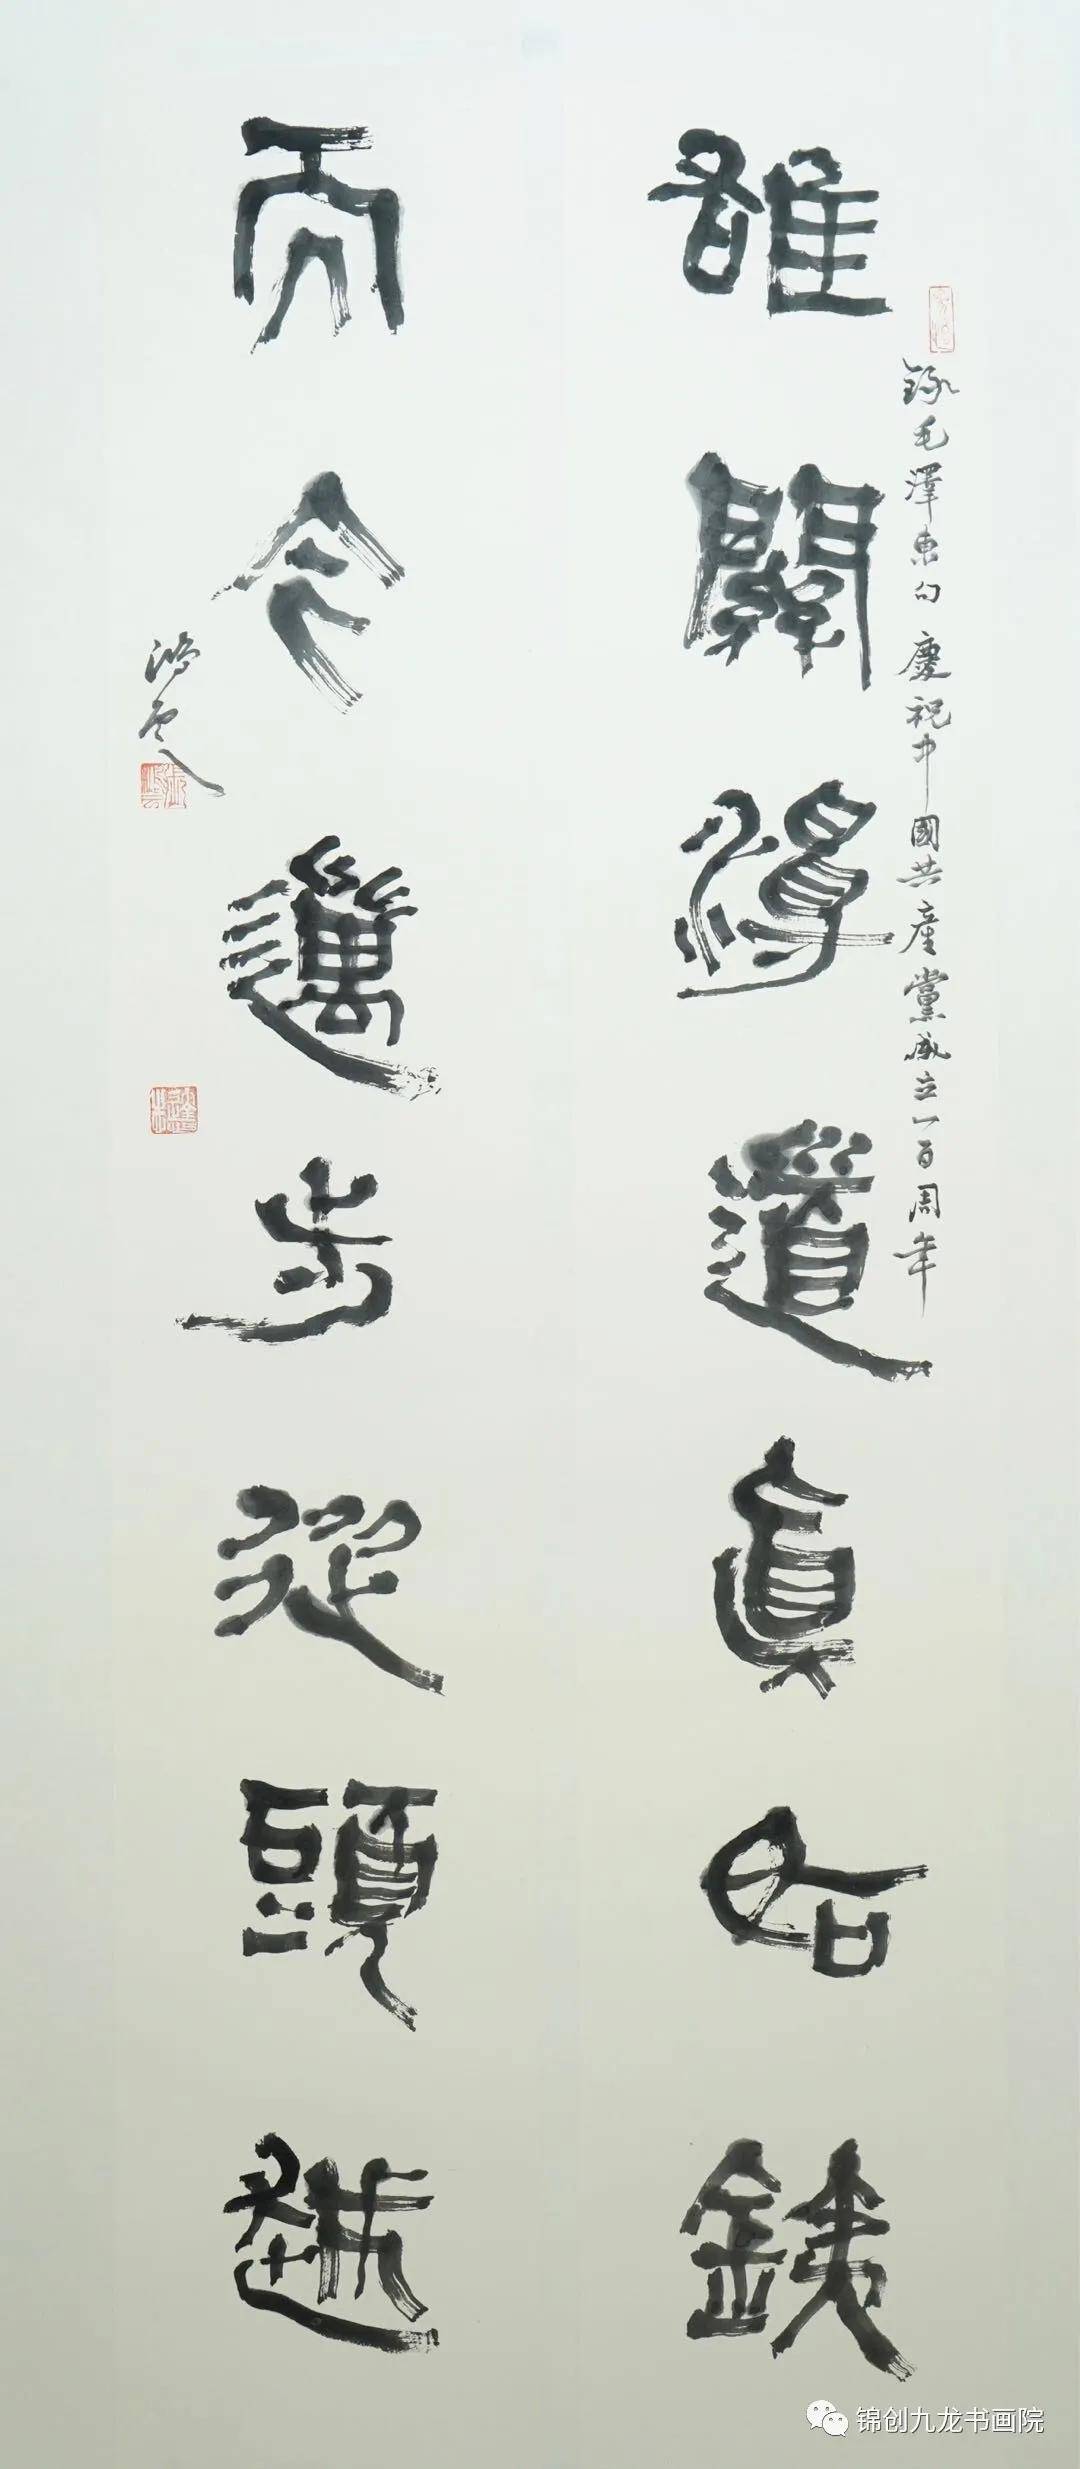 錄毛澤東句 慶祝中國共產黨成立一百周年
雄關漫道真如銕
而今邁步從頭越
鴻雲
锦创九龙书画院